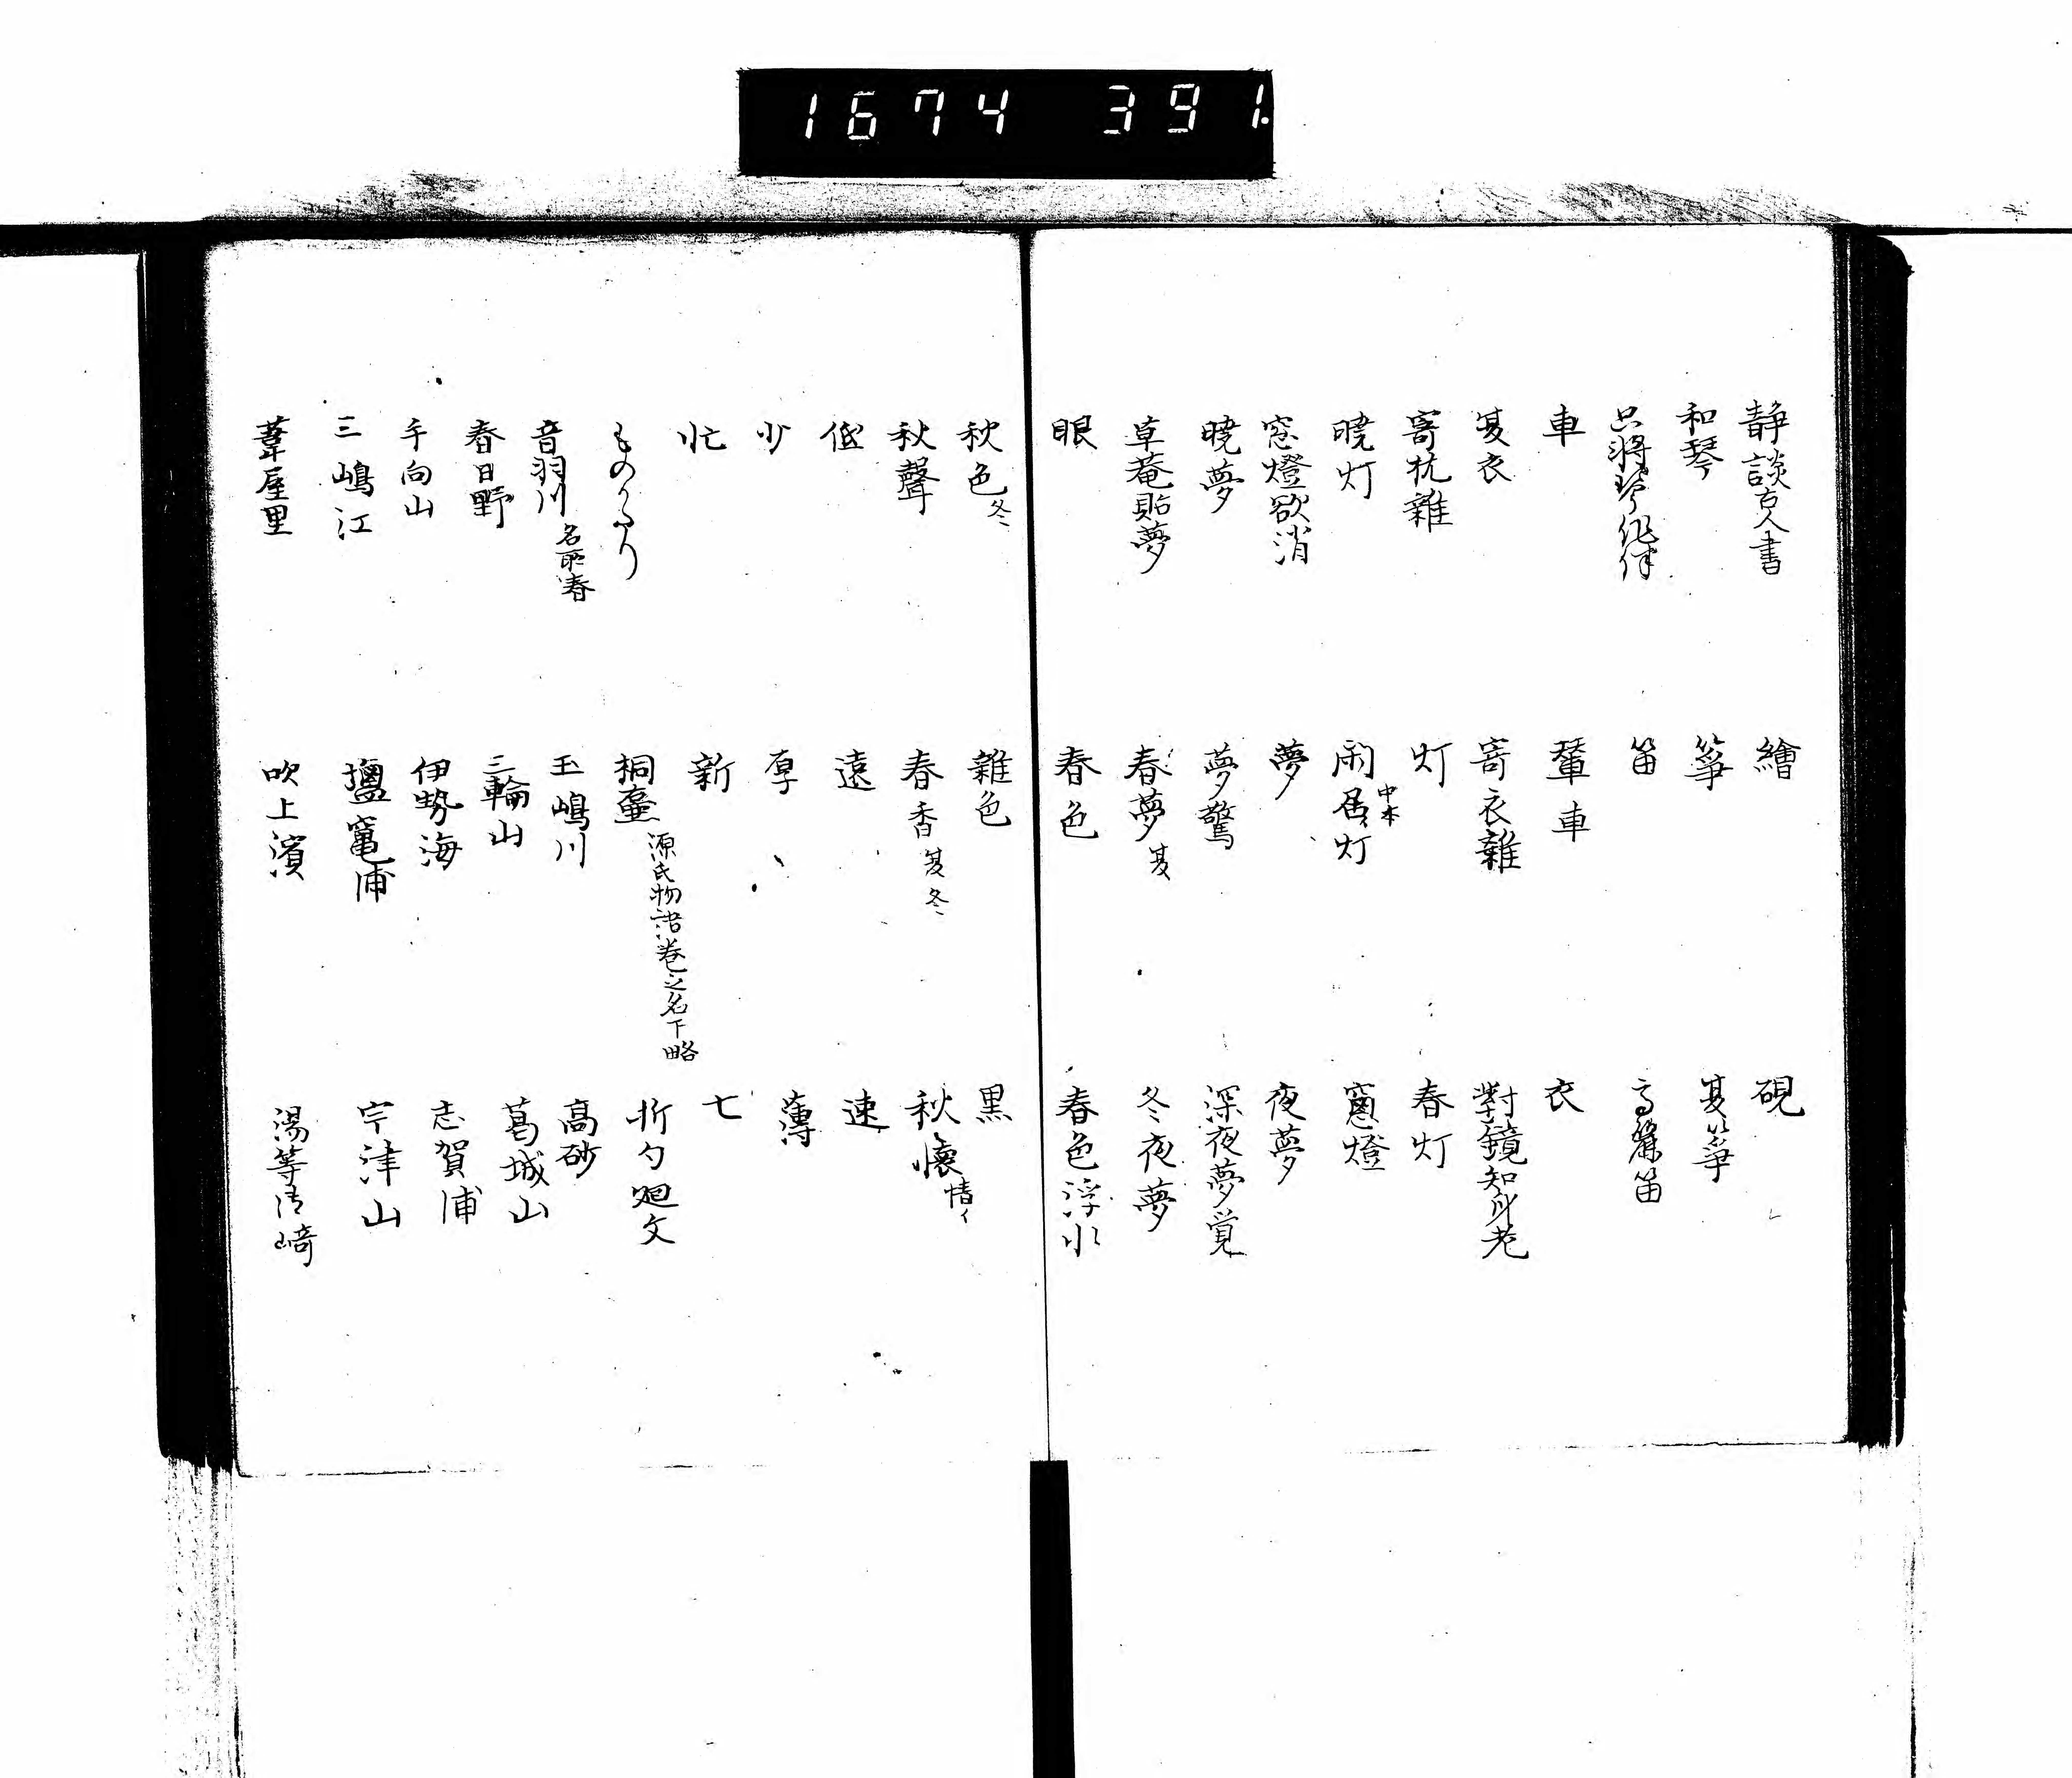 1674 391.
静談古人書　繪　硯
和琴　箏　夏箏
只将琴作伴　笛　高麗笛
車　輦車　衣
夏衣　寄衣雜　對鏡知身老
寄枕雜　灯　春灯
暁灯　閑居灯 中本　窓燈
窓燈欲消　夢　夜夢
暁夢　夢驚　深夜夢覚
草菴貼夢　春夢 夏　冬夜夢
眼　春色　春色浮水
秋色 冬　雜色　黒
秋聲　春香 夏冬　秋懐 情イ
低　遠　速
少　厚　薄
忙　新　七
ものかたり　桐壷 源氏物語巻之名下略　折句廻文
音羽川 名所春　玉嶋川　高砂
春日野　三輪山　葛城山
手向山　伊勢海　志賀浦
三嶋江　塩竃浦　宇津山
葦屋里　吹上濱　湯等崎